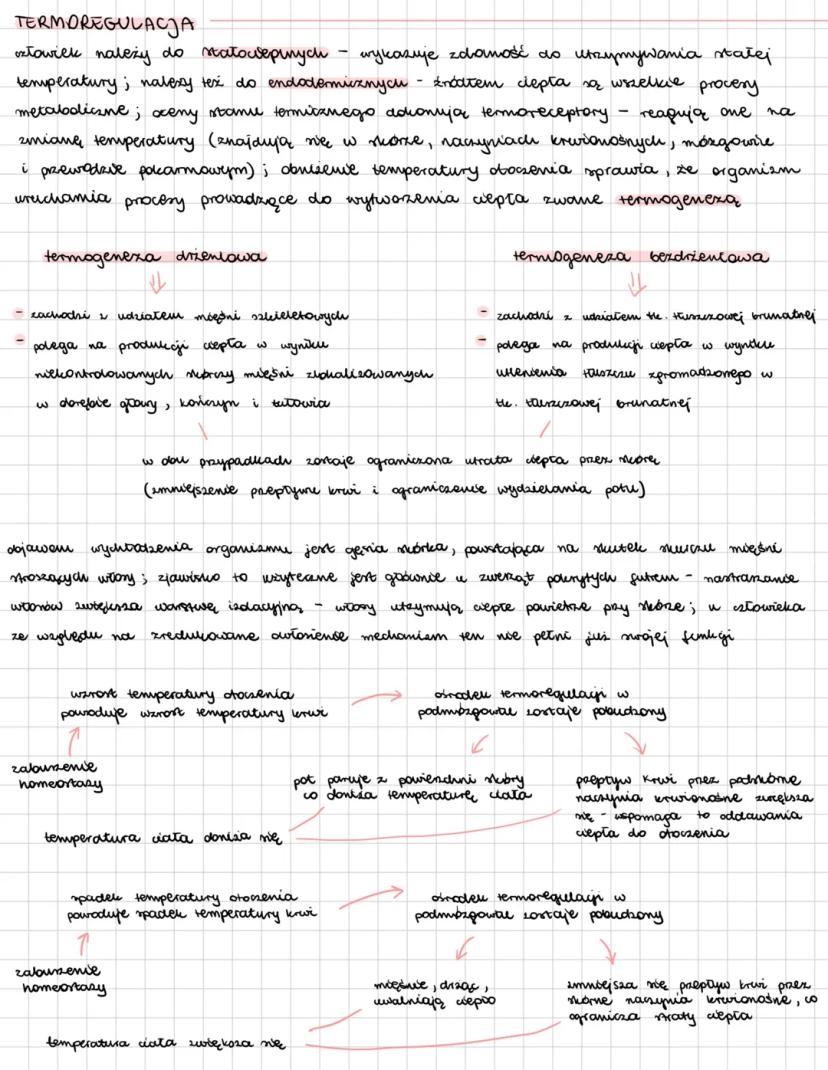 TERMOREGULACJA
człowiek należy do stałocieplnych - wykazuje zdolność do utrzymywania stałej
temperatury; należy też do endodermicznych - źródłem ciepła są wszelkie procesy
metaboliczne; oceny stanu termicznego dokonują termoreceptory - reagują one na
zmianę temperatury (znajdują się w skórze, naczyniach krwionośnych, mózgowie
i przewodzie pokarmowym); obniżenie temperatury otoczenia sprawia, że organizm
uruchamia procesy prowadzące do wytworzenia ciepła zwane termogenezą
termogeneza drżeniowa
- zachodzi z udziałem mięśni szkieletowych
- polega na produkcji ciepła w wyniku
niekontrolowanych skurczy mięśni zlokalizowanych
w obrębie głowy, kończyn i tułowia
termogeneza bezdrżeniowa
- zachodzi z udziałem tk. tłuszczowej brunatnej
- polega na produkcji ciepła w wyniku
utlenienia tłuszczu zgromadzonego w
tk. tłuszczowej brunatnej
w obu przypadkach zostaje ograniczona utrata ciepła przez skórę
(zmniejszenie przepływu krwi i ograniczenie wydzielania potu)
objawem wychłodzenia organizmu jest gęsia skórka, powstająca na skutek skurczu mięśni
stroszących włosy; zjawisko to użyteczne jest głównie u zwierząt pokrytych futrem - nastraszanie
włosów zwiększa warstwę izolacyjną - włosy utrzymują ciepłe powietrze przy skórze; u człowieka
ze względu na zredukowane owłosienie mechanizm ten nie pełni już swojej funkcji
wzrost temperatury otoczenia
powoduje wzrost temperatury krwi
ośrodek termoregulacji w
podmózgowiu zostaje pobudzony
zaburzenie
homeostazy
pot paruje z powierzchni skóry
co obniża temperaturę ciała
przepływ krwi przez podskórne
naczynia krwionośne zwiększa
się - wspomaga to oddawania
ciepła do otoczenia
temperatura ciała obniża się
spadek temperatury otoczenia
powoduje spadek temperatury krwi
ośrodek termoregulacji w
podmózgowiu zostaje pobudzony
zaburzenie
homeostazy
mięśnie, drżąc,
uwalniają ciepło
zmniejsza się przepływ krwi przez
skórne naczynia krwionośne, co
ogranicza straty ciepła
temperatura ciała zwiększa się